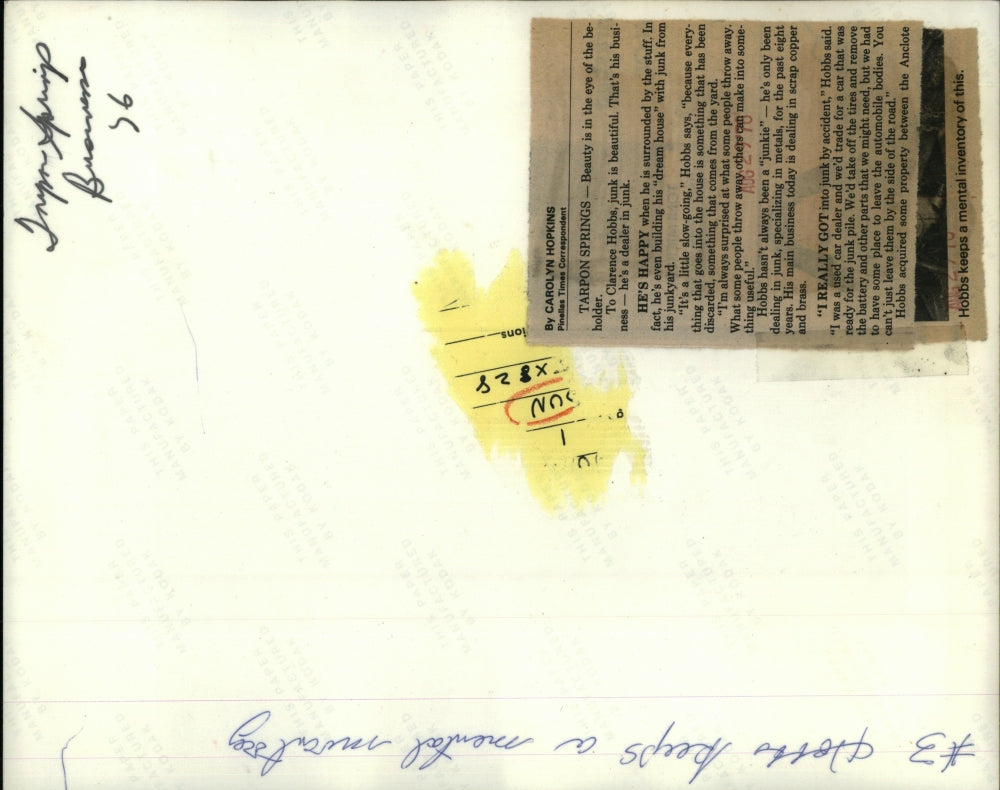 Tarpon Springs
Businesses
76
By CAROLYN HOPKINS
Pinellas Times Correspondent
TARPON SPRINGS — Beauty is in the eye of the be-
holder.
To Clarence Hobbs, junk is beautiful. That's his busi-
ness — he's a dealer in junk.
HE'S HAPPY when he is surrounded by the stuff. In
fact, he's even building his "dream house" with junk from
his junkyard.
"It's a little slow-going," Hobbs says, "because every-
thing that goes into the house is something that has been
discarded, something that comes from the yard.
"I'm always surprised at what some people throw away.
What some people throw away others can make into some-
thing useful."
Hobbs hasn't always been a "junkie" — he's only been
dealing in junk, specializing in metals, for the past eight
years. His main business today is dealing in scrap copper
and brass.
"I REALLY GOT into junk by accident," Hobbs said.
"I was a used car dealer and we'd trade for a car that was
ready for the junk pile. We'd take off the tires and remove
the battery and other parts that we might need, but we had
to have some place to leave the automobile bodies. You
can't just leave them by the side of the road."
Hobbs acquired some property between the Anclote
Hobbs keeps a mental inventory of this.
ions
x828
SUN
1
#3 Hobbs keeps a mental inventory
THIS PAPER
MANUFACTURED
BY KODAK